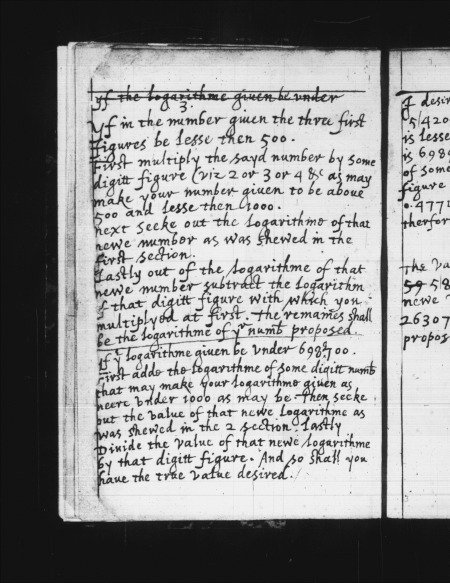 Yf the logarithme giuen be vnder
3.
Yf in the number giuen the three first
figures be lesse then 500.
First multiply the sayd number by some
digitt figure (viz 2 or 3 or 4 &c as may
make your number giuen to be aboue
500 and lesse then 1000.
next seeke out the Logarithme of that
newe number as was shewed in the
first section.
Lastly out of the Logarithme of that
newe number subtract the Logarithm
of that digitt figure with which you
multiplyed at first. The remaines shall
be the logarithme of yr numb proposed.
If yr logarithme giuen be vnder 698700.
First adde the Logarithme of some digitt numb
that may make your Logarithme giuen as
neere vnder 1000 as may be. Then seeke
out the value of that newe Logarithme as
was shewed in the 2 section. Lastly
Diuide the value of that newe Logarithme
by that digitt figure. And so shall you
haue the true value desired.
4 desir
5420
is lesse
is 698
of some
figure
0.4771
therfor
The va
59 58
newe
26307
propos